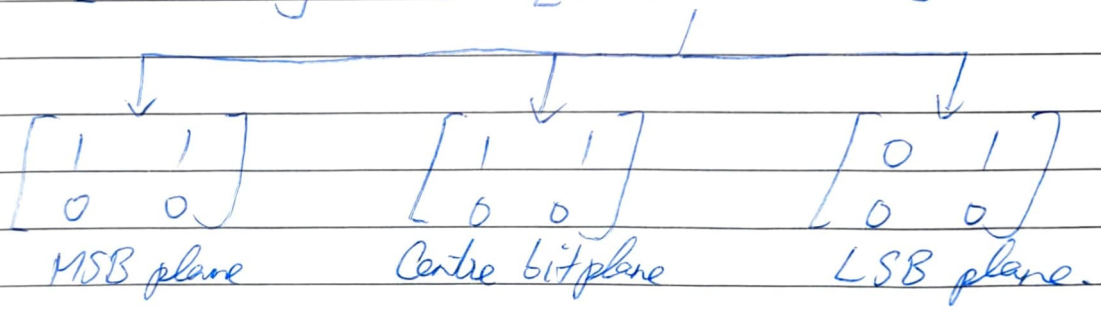 1 1 1 1 0 1
0 0 0 0 0 0
MSB plane Centre bitplane LSB plane.